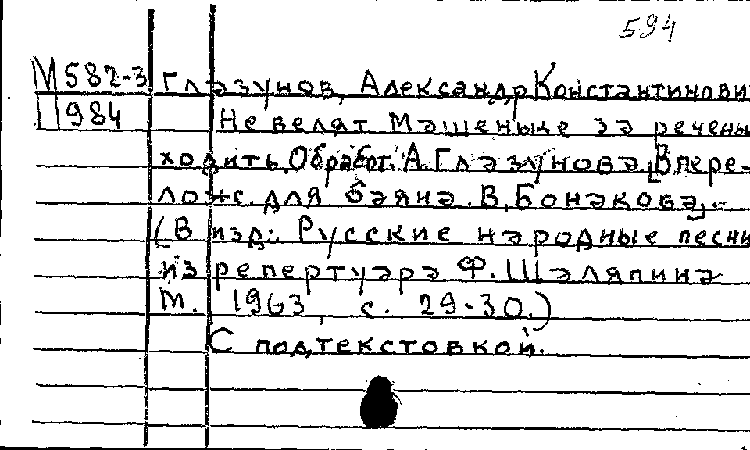 594
М582-3 Глазунов, Александр Константинови
П984 Не велят Машеньке за речены
ходить. Обработ. А. Глазунова [В пере-
лож. для баяна В. Бонакова].-
(В изд: Русские народные песни
из репертуара Ф. Шаляпина
М. 1963, с. 29-30.)
С подтекстовкой.